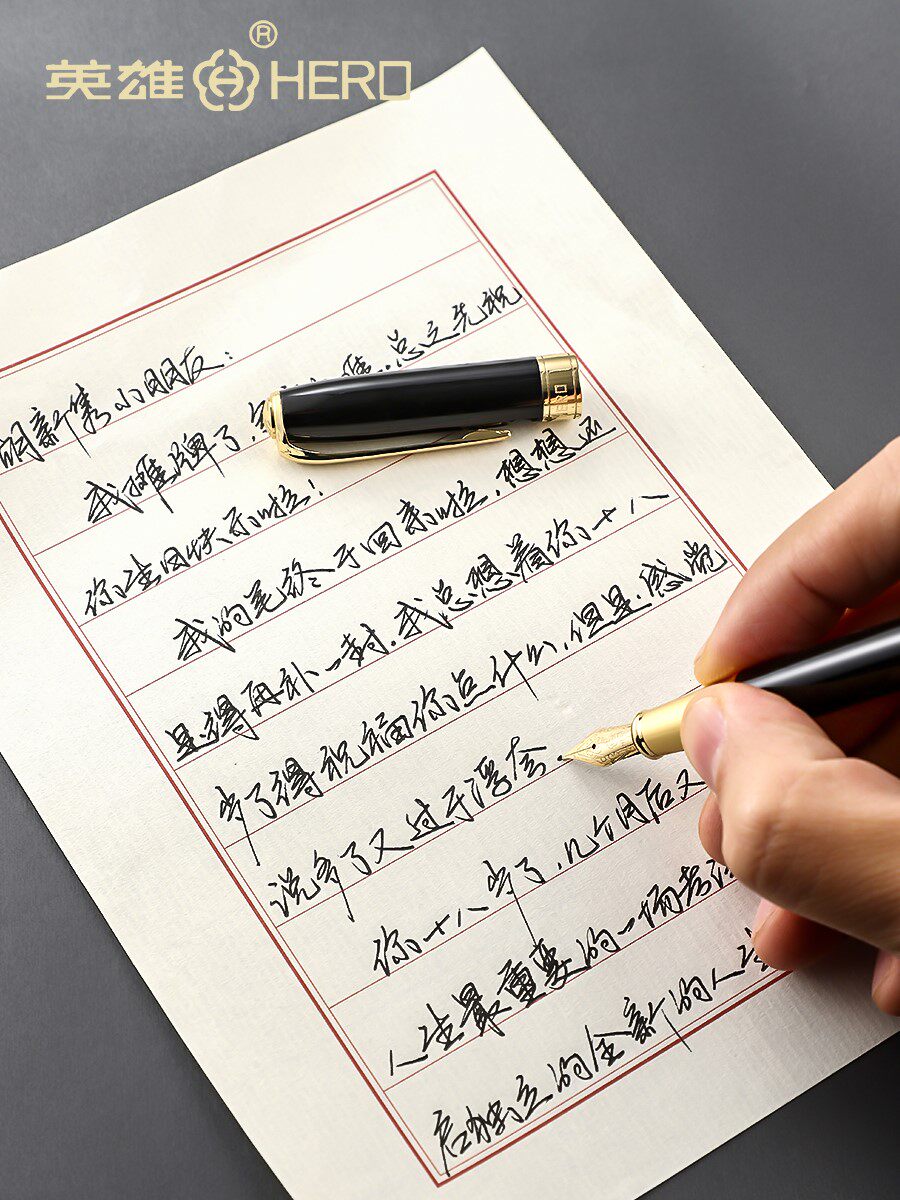 英雄 ® HERO
胡新隽小朋友：
我摊牌了， 总之先祝
你生日快乐啦！
我的笔终于回来啦，想想还
是得再补一封.我总想着你十八
岁了得祝福你点什么，但是感觉
说多了又过于浮夸.
你十八岁了，几个月后又
人生最重要的一场考
启独立的全新的人生
HERO